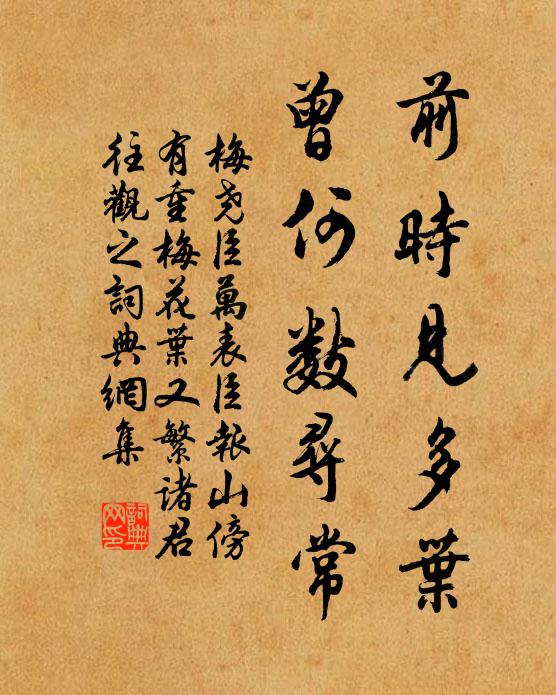 前時見多葉
曾何數尋常
梅堯臣萬表臣報山傍
有重梅花葉又繁諸君
往觀之詞典網集
詞典網印